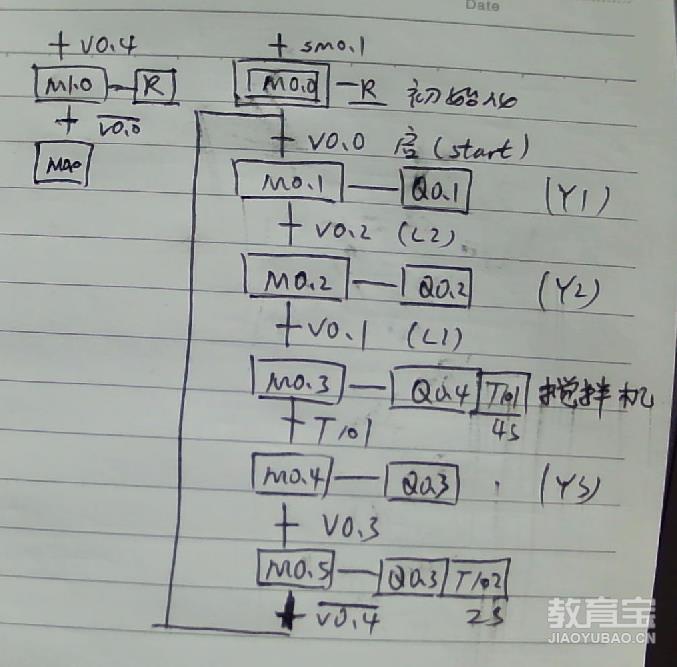 Date
+ V0.4
+ SM0.1
M1.0 R
M0.0 R 初始化
+ V0.0
+ V0.0 启(start)
M0.0
M0.1 Q0.1 (Y1)
+ V0.2 (L2)
M0.2 Q0.2 (Y2)
+ V0.1 (L1)
M0.3 Q0.4 T101 搅拌机
4S
+ T101
M0.4 Q0.3 (Y3)
+ V0.3
M0.5 Q0.3 T102
2S
+ V0.4
教育宝
JIAOYUBAO.CN